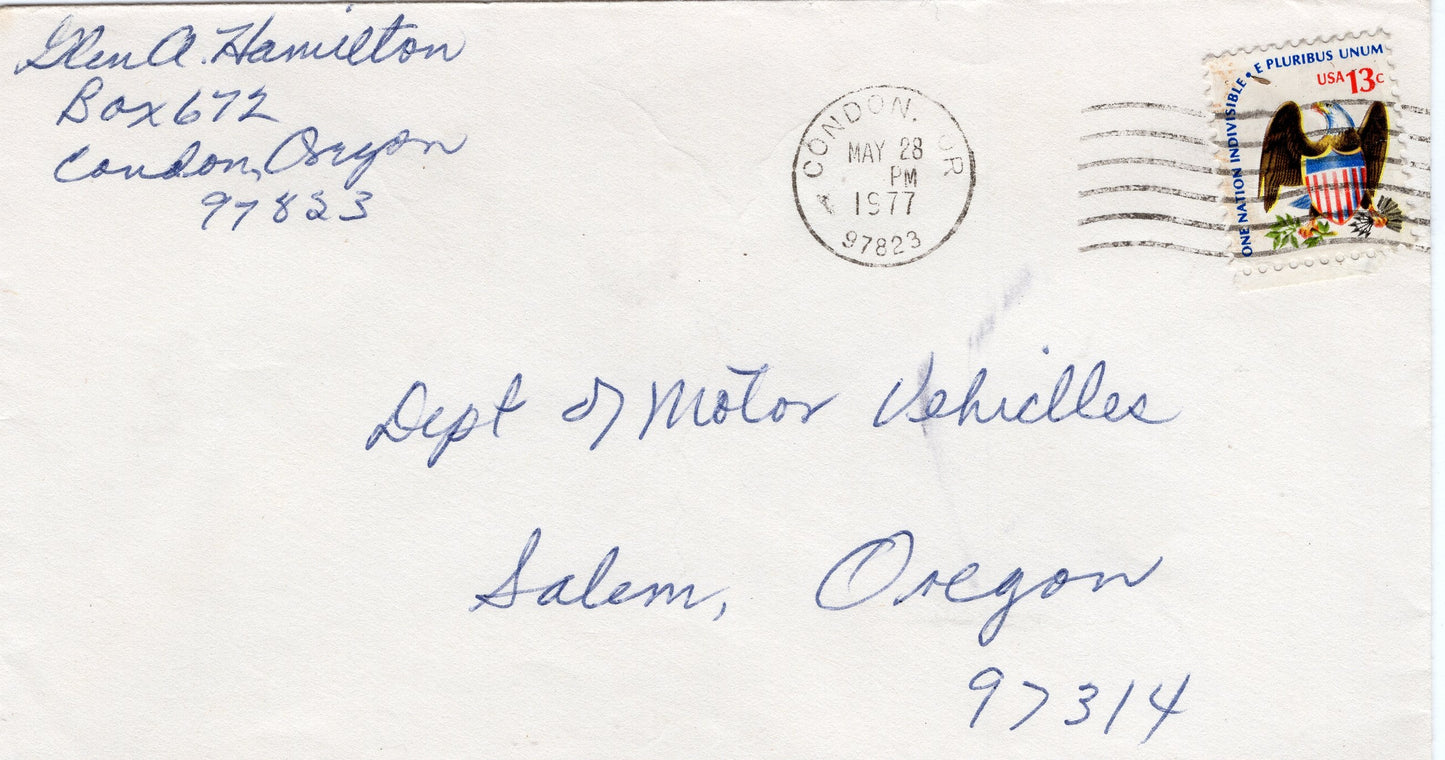 Glen A. Hamilton
Box 672
Condon, Oregon
97823
CONDON, OR
MAY 28
PM
1977
97823
ONE NATION INDIVISIBLE • E PLURIBUS UNUM
USA 13c
Dept of Motor Vehiclles
Salem, Oregon
97314